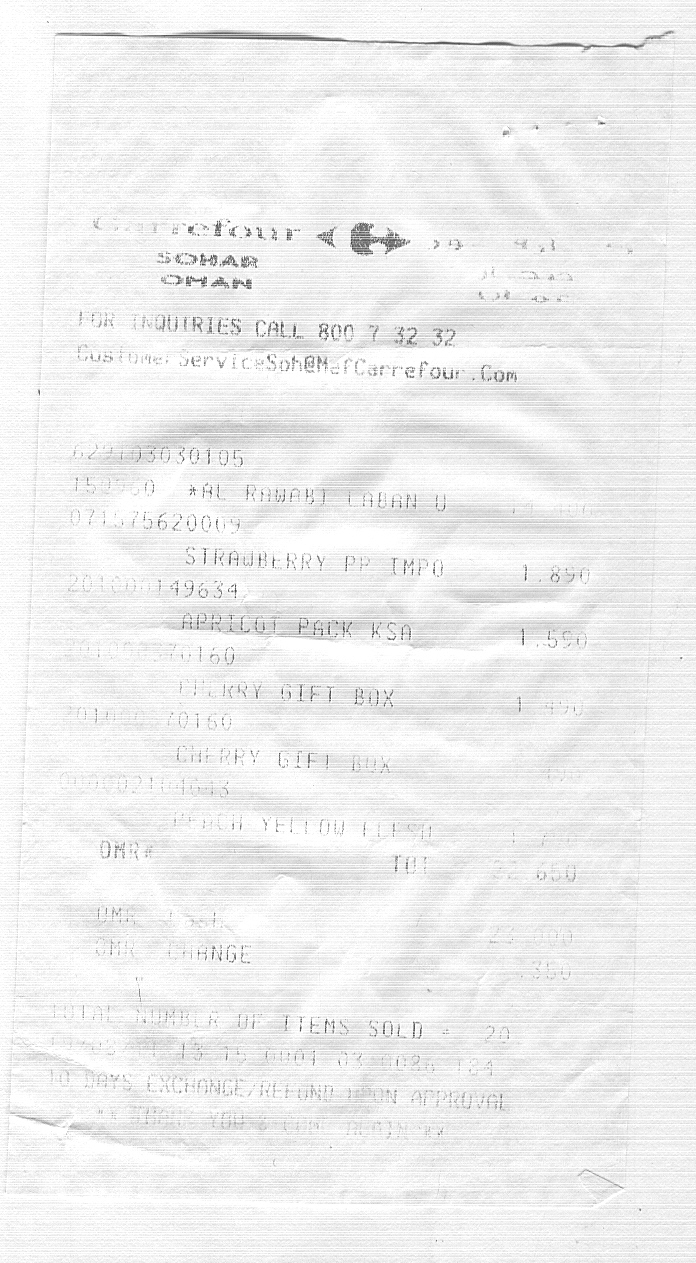 Carrefour
SOHAR
OMAN
FOR INQUIRIES CALL 800 7 32 32
CustomerServiceSoh@MafCarrefour.Com
629103030105
*AL RAWABI LABAN U
071575620009
STRAWBERRY PP IMPO 1.890
201000149634
APRICOT PACK KSA 1.590
201000370160
CHERRY GIFT BOX 1.490
201000370160
CHERRY GIFT BOX
PEACH YELLOW FLESH
OMR* TOT 22.650
OMR Cash 23.000
OMR CHANGE .350
TOTAL NUMBER OF ITEMS SOLD = 20
10 DAYS EXCHANGE/REFUND UPON APPROVAL
** THANK YOU & COME AGAIN **